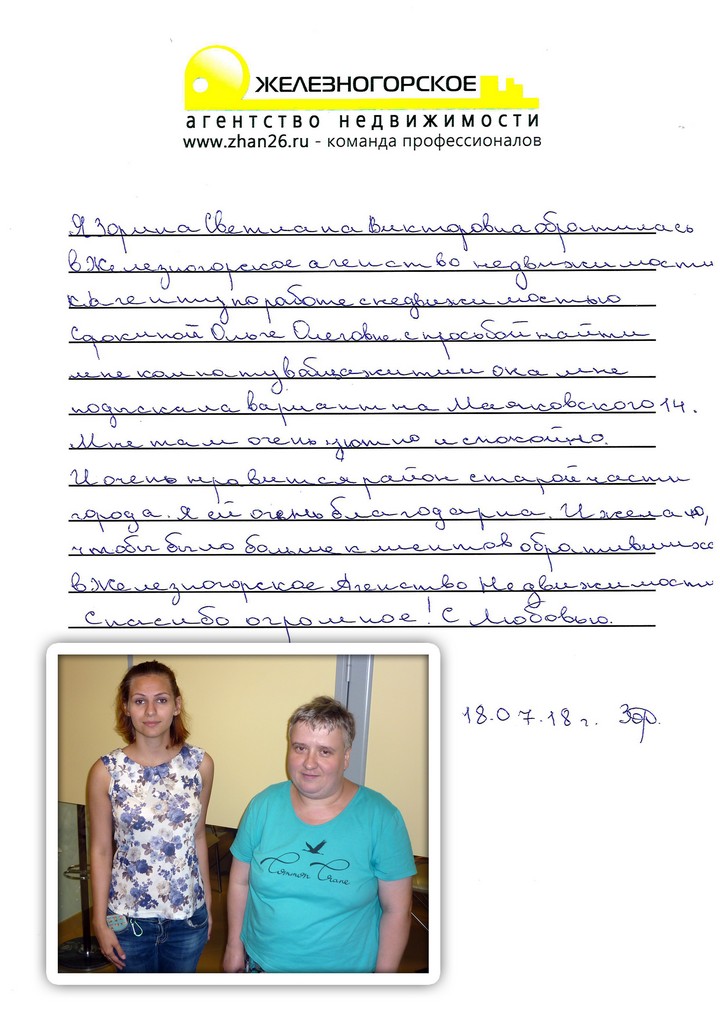 ЖЕЛЕЗНОГОРСКОЕ
агентство недвижимости
www.zhan26.ru - команда профессионалов
Я Зорина Светлана Викторовна обратилась
в Железногорское агенство недвижимости
к агенту по работе с недвижимостью
Сдокиной Ольге Олеговне с просьбой найти
мне комнату в общежитии она мне
подыскала вариант на Маяковского 14.
Мне там очень уютно и спокойно.
И очень нравится район старой части
города. Я ей очень благодарна. И желаю,
чтобы было больше клиентов обратившихся
в Железногорское Агенство Недвижимости
Спасибо огромное! С Любовью.
18.07.18 г. Зор.
Common Crane